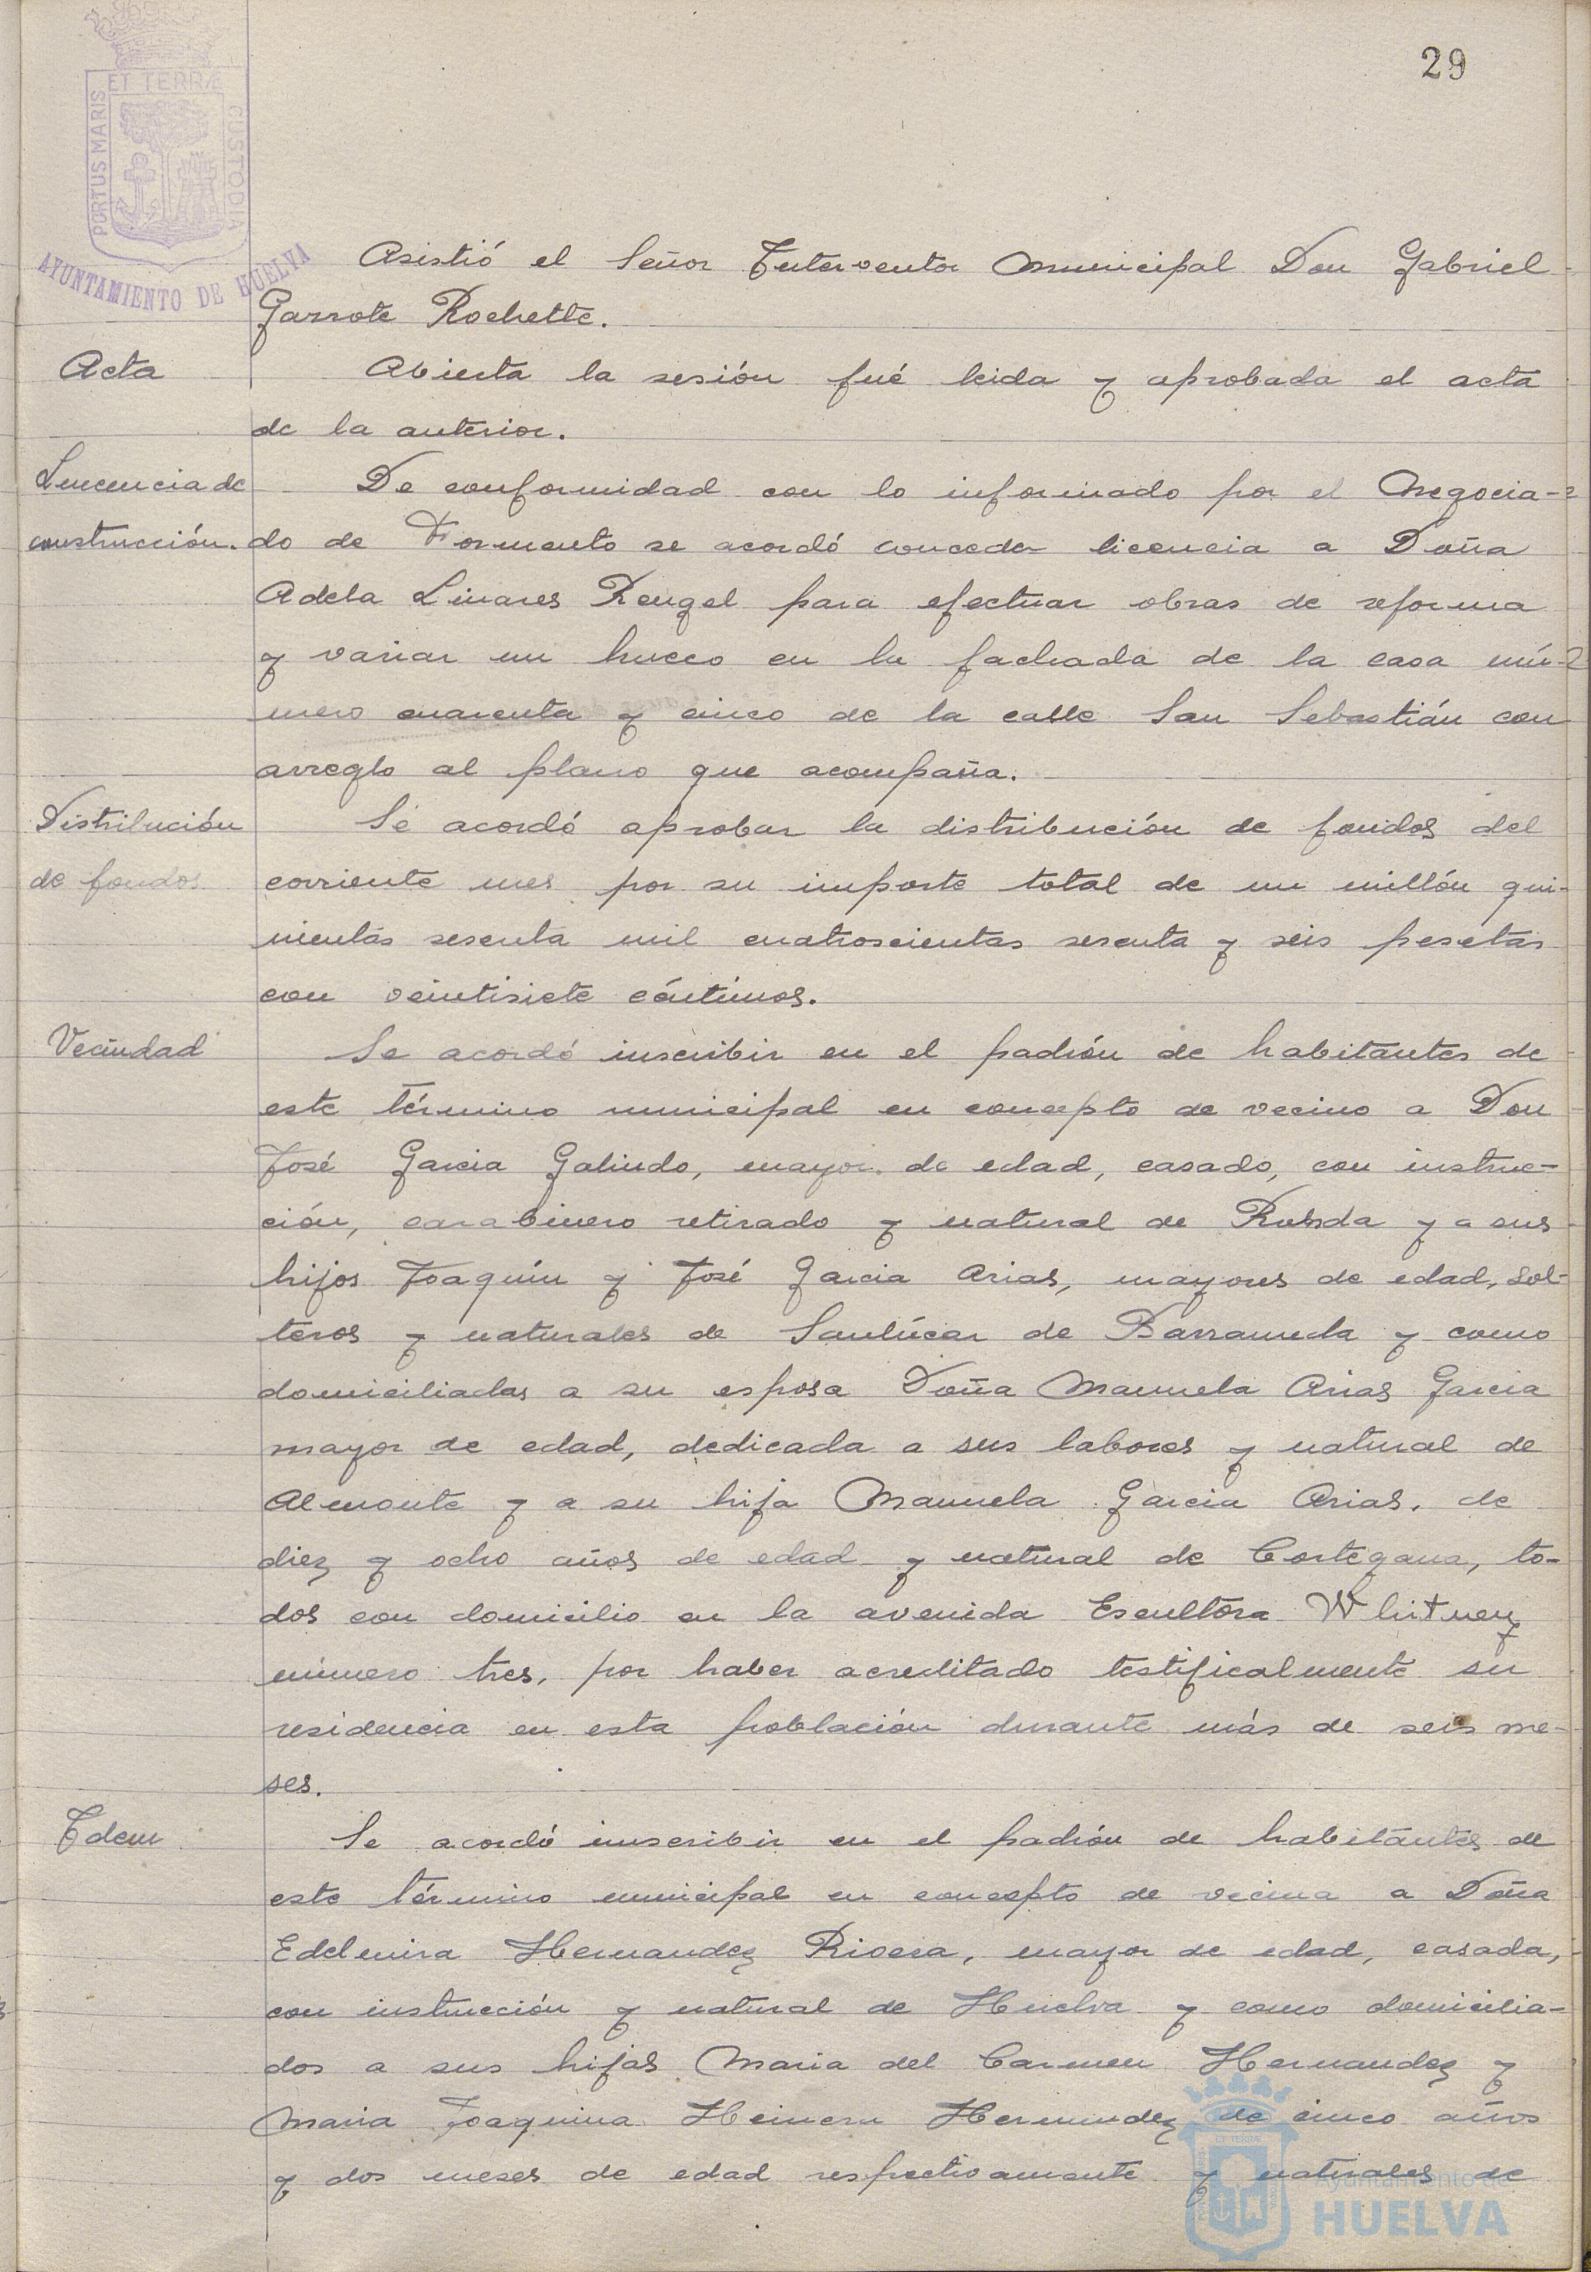 29
PORTUS MARIS
ET TERRÆ
CUSTODIA
AYUNTAMIENTO DE HUELVA
Asistió el Señor Interventor municipal Don Gabriel
Garrote Rochette.
Acta
Abierta la sesión fué leida y aprobada el acta
de la anterior.
De conformidad con lo informado por el Negocia-
construcción.
do de Fomento se acordó conceder licencia a Doña
Adela Linares Rengel para efectuar obras de reforma
y variar un hueco en la fachada de la casa nú-
mero cuarenta y cinco de la calle San Sebastián con
arreglo al plano que acompaña.
Distribución
de fondos
Se acordó aprobar la distribución de fondos del
corriente mes por su importe total de un millón qui-
nientas sesenta mil cuatroscientas sesenta y seis pesetas
con veintisiete céntimos.
Vecindad
Se acordó inscribir en el padrón de habitantes de
este término municipal en concepto de vecino a Don
José Garcia Galindo, mayor de edad, casado, con instruc-
ción, carabinero retirado y natural de Ronda y a sus
hijos Joaquín y José Garcia Arias, mayores de edad, sol-
teros y naturales de Sanlúcar de Barrameda y como
domiciliadas a su esposa Doña Manuela Arias Garcia
mayor de edad, dedicada a sus labores y natural de
Almonte y a su hija Manuela Garcia Arias, de
diez y ocho años de edad y natural de Cortegana, to-
dos con domicilio en la avenida Escultora Whitney
número tres, por haber acreditado testificalmente su
residencia en esta población durante más de seis me-
ses.
Idem
Se acordó inscribir en el padrón de habitantes de
este término municipal en concepto de vecina a Doña
Edelmira Hernandez Rivera, mayor de edad, casada,
con instrucción y natural de Huelva y como domicilia-
dos a sus hijas Maria del Carmen Hernandez y
Maria Joaquina Hernandez de cinco años
y dos meses de edad respectivamente y naturales de
Ayuntamiento de
HUELVA